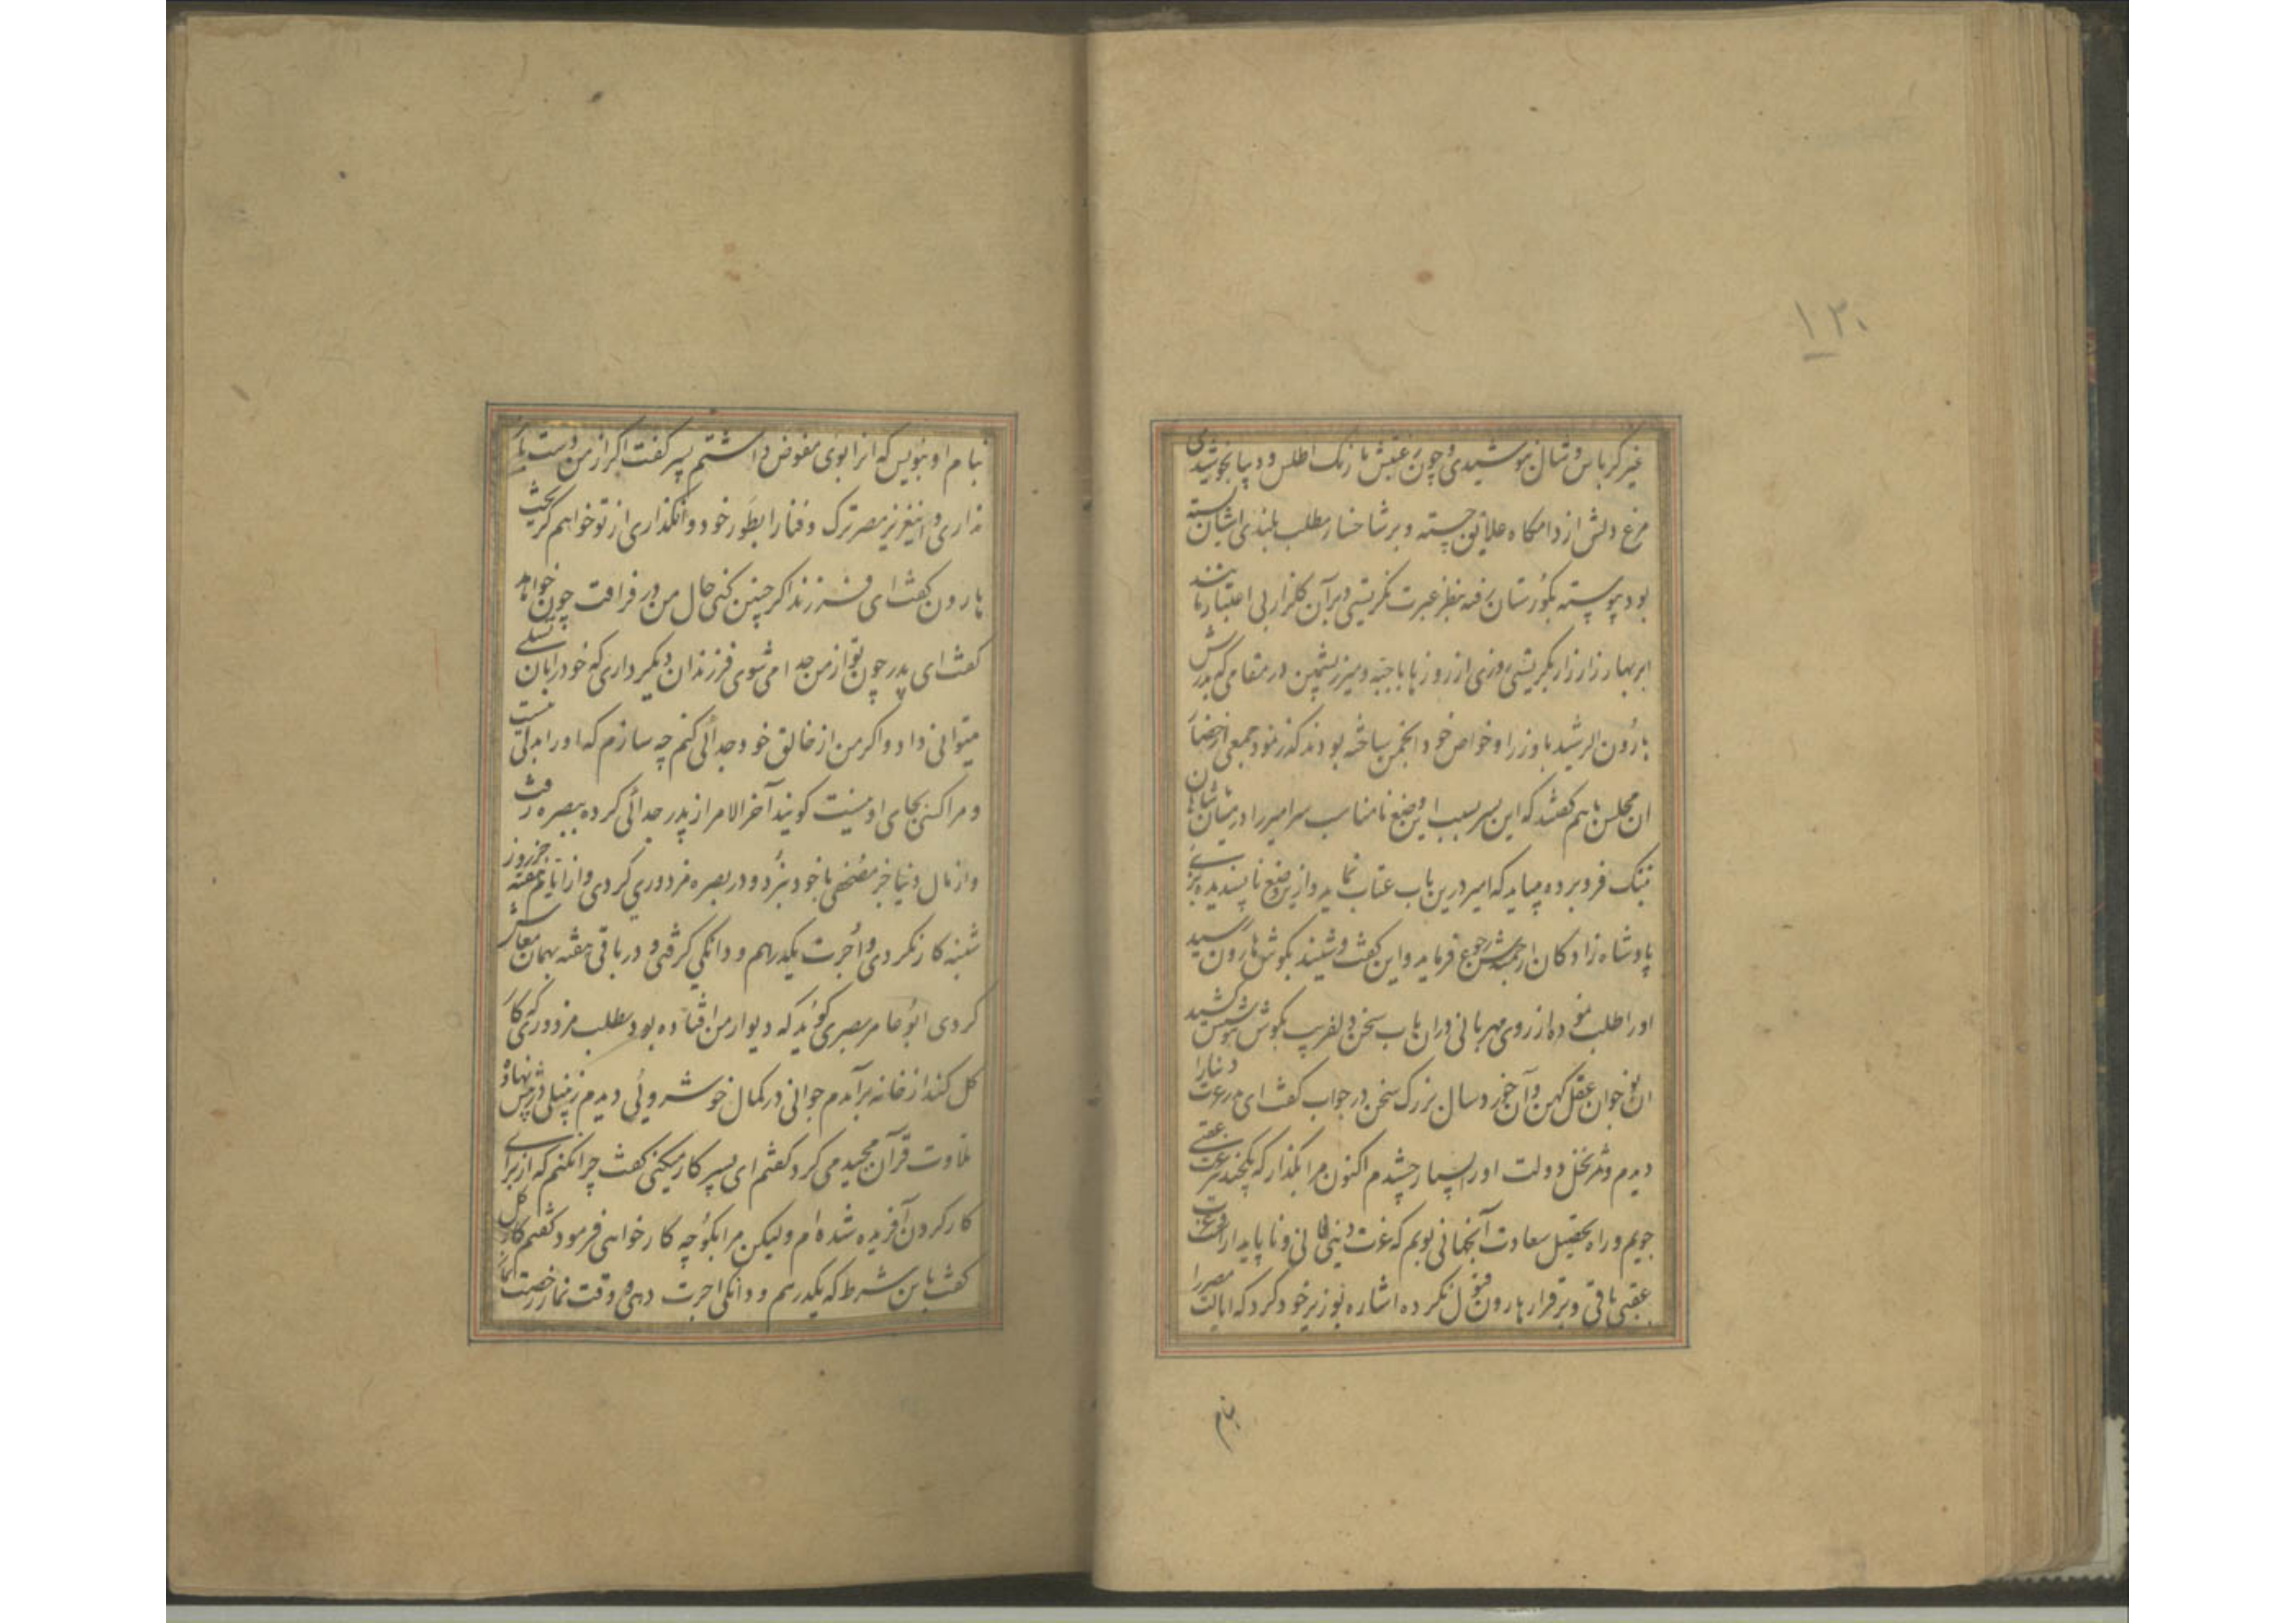 ۱۳۰
غیر کرباس و شال نپوشیدی و چون نقش با رنگ اطلس و دیبا نجوشیدی
مرغ دلش از دامکاه علایق جسته و بر شاخسار مطلب بلندی آشیان بسته
بود پیوسته بکورستان رفته بنظر عبرت نکریستی و بر آن کلزار بی اعتبار مانند
ابر بهار زار زار بکریستی روزی از روزها با جبه و میزر پشمین در مقامی که پدرش
هارون الرشید با وزرا و خواص خود انجمن ساخته بودند کذر نمود جمعی از حضار
آن مجلس باهم کفتند که این پسر بسبب این وضع نامناسب سر امیر را در میان شاهان
بننک فرو برده میباید که امیر درین باب عتاب نماید و ازین وضع ناپسندیده بزی
پادشاه زادکان ارجمندش رجوع فرماید و این کفت و شنید بکوش هارون رسید
او را طلب نموده از روی مهربانی در آن باب سخن دلفریب بکوش هوشش کشید
آن نوجوان عقل کهن و آن خورد سال بزرک سخن در جواب کفت ای پدر عزت دنیا را
دیدم و ثمر نخل دولت او را بسیار چشیدم اکنون مرا بکذار که یکچند عزت عقبی
جویم و راه تحصیل سعادت آنجهانی پویم که عزت دنیی فانی و ناپایدار است و عزت
عقبی باقی و برقرار هارون قبول نکرده اشاره بوزیر خود کرد که ایالت مصر را
بنام
بنام او بنویس که آنرا بوی مفوض داشتم پسر کفت اکر از من دست باز
نداری و این عزیز مصر ترک و فنا را بطور خود وانکذاری از تو خواهم کریخت
هارون کفت ای فرزند اکر چنین کنی حال من در فراقت چون خواهد
کفت ای پدر چون تو از من جدا می شوی فرزندان دیکر داری که خود را بآن تسلی
میتوانی داد و اکر من از خالق خود جدائی کنم چه سازم که او را بدلی نیست
و مرا کسی بجای او نیست کویند آخر الامر از پدر جدائی کرده ببصره رفت
و از مال دنیا جز مصحفی با خود نبرد و در بصره مزدوری کردی و از ایام هفته جز روز
شنبه کار نکردی و اجرت یکدرهم و دانکی کرفتی و در باقی هفته بهمان معاش
کردی ابو عامر بصری کوید که دیوار من افتاده بود بطلب مزدوری که کار
کل کند از خانه برآمدم جوانی در کمال خوشروئی دیدم زنبیلی در پیش نهاده
تلاوت قرآن مجید می کرد کفتم ای پسر کار میکنی کفت چرا نکنم که از برای
کار کردن آفریده شده ام ولیکن مرا بکو چه کار خواهی فرمود کفتم کار کل
کفت باین شرط که یکدرهم و دانکی اجرت دهی و وقت نماز رخصت نما